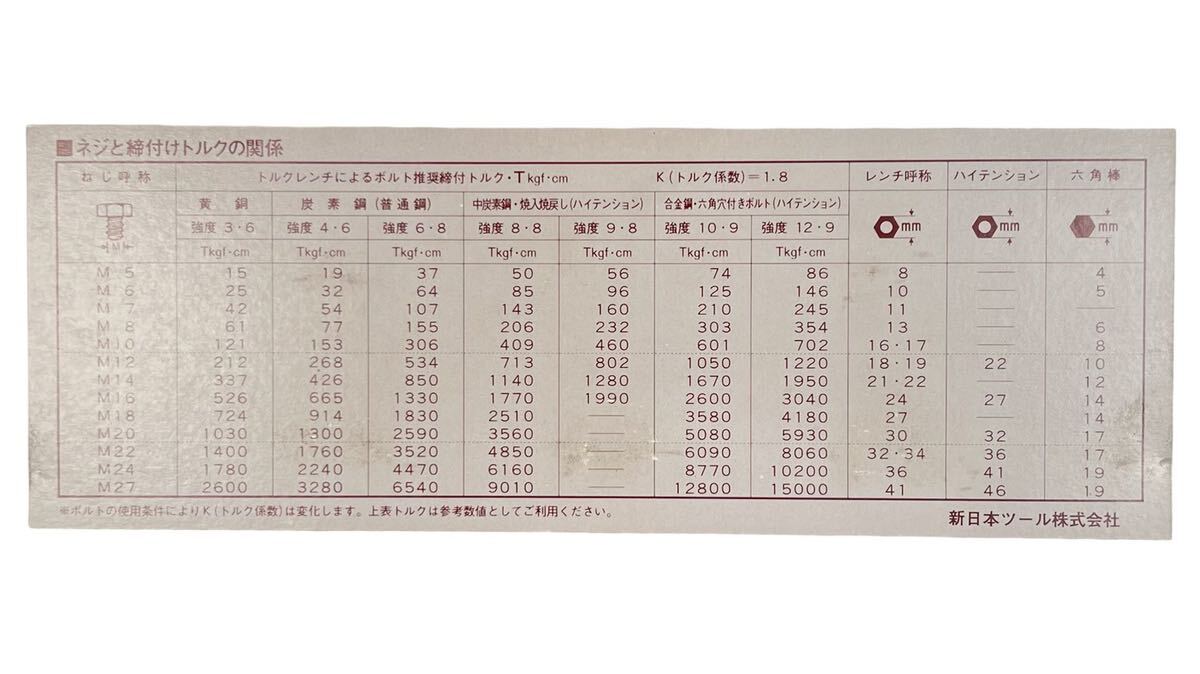 ネジと締付けトルクの関係
ねじ呼称 トルクレンチによるボルト推奨締付トルク・Tkgf・cm K(トルク係数)=1.8 レンチ呼称 ハイテンション 六角棒
黄銅 炭素鋼(普通鋼) 中炭素鋼・焼入焼戻し(ハイテンション) 合金鋼・六角穴付きボルト(ハイテンション)
M 強度3・6 強度4・6 強度6・8 強度8・8 強度9・8 強度10・9 強度12・9 mm mm mm
Tkgf・cm Tkgf・cm Tkgf・cm Tkgf・cm Tkgf・cm Tkgf・cm Tkgf・cm
M 5 15 19 37 50 56 74 86 8 — 4
M 6 25 32 64 85 96 125 146 10 — 5
M 7 42 54 107 143 160 210 245 11 — —
M 8 61 77 155 206 232 303 354 13 — 6
M10 121 153 306 409 460 601 702 16・17 — 8
M12 212 268 534 713 802 1050 1220 18・19 22 10
M14 337 426 850 1140 1280 1670 1950 21・22 — 12
M16 526 665 1330 1770 1990 2600 3040 24 27 14
M18 724 914 1830 2510 — 3580 4180 27 — 14
M20 1030 1300 2590 3560 — 5080 5930 30 32 17
M22 1400 1760 3520 4850 — 6090 8060 32・34 36 17
M24 1780 2240 4470 6160 — 8770 10200 36 41 19
M27 2600 3280 6540 9010 — 12800 15000 41 46 19
※ボルトの使用条件によりK(トルク係数)は変化します。上表トルクは参考数値としてご利用ください。
新日本ツール株式会社